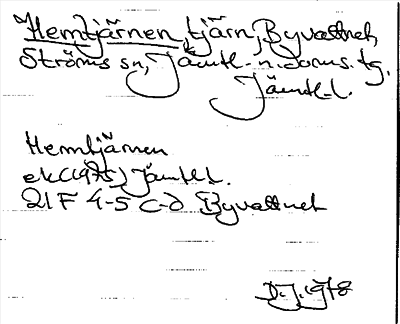 Hemtjärnen, tjärn, Byvattnet,
Ströms sn, Jämtl. n. doms. tg,
Jämtl. l.
Hemtjärnen
ek (1975) Jämtl l.
21 F 4-5 c-d Byvattnet
D.J. 1978